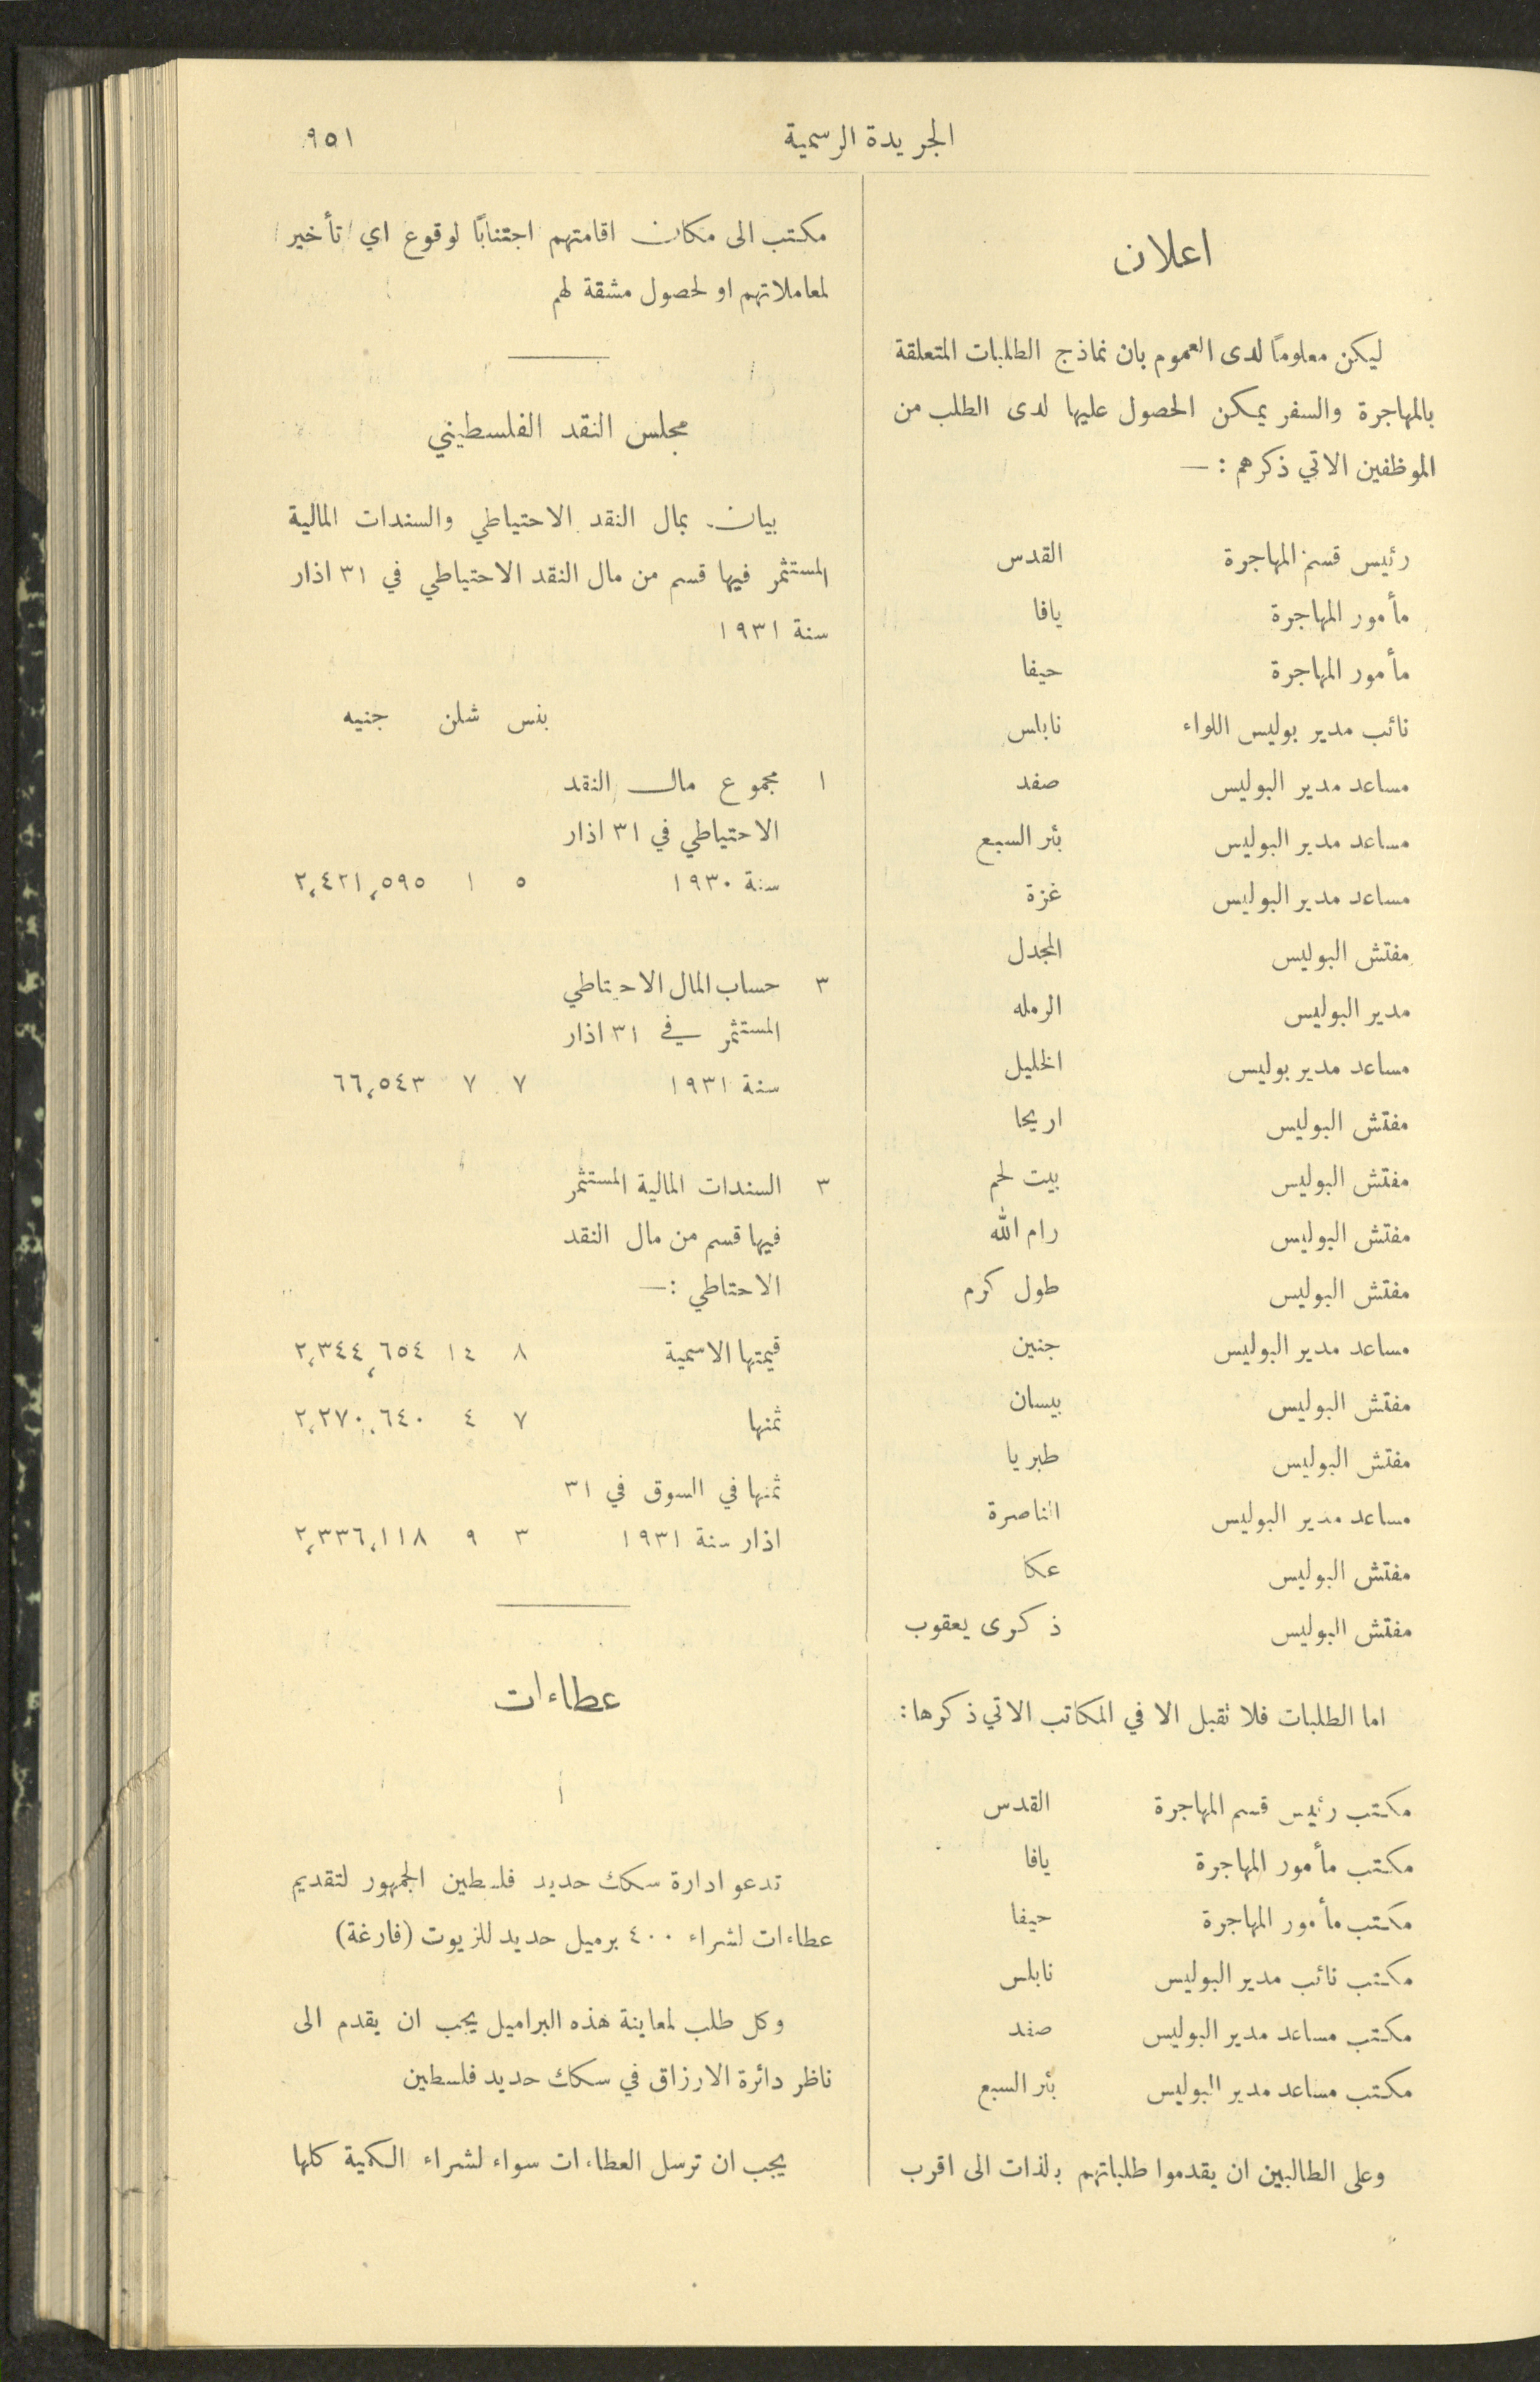 الجريدة الرسمية
٩٥١
اعلان
ليكن معلوماً لدى العموم بان نماذج الطلبات المتعلقة
بالمهاجرة والسفر يمكن الحصول عليها لدى الطلب من
الموظفين الاتي ذكرهم : —
رئيس قسم المهاجرة القدس
مأمور المهاجرة يافا
مأمور المهاجرة حيفا
نائب مدير بوليس اللواء نابلس
مساعد مدير البوليس صفد
مساعد مدير البوليس بئر السبع
مساعد مدير البوليس غزة
مفتش البوليس المجدل
مدير البوليس الرمله
مساعد مدير بوليس الخليل
مفتش البوليس اريحا
مفتش البوليس بيت لحم
مفتش البوليس رام الله
مفتش البوليس طول كرم
مساعد مدير البوليس جنين
مفتش البوليس بيسان
مفتش البوليس طبريا
مساعد مدير البوليس الناصرة
مفتش البوليس عكا
مفتش البوليس ذكرى يعقوب
اما الطلبات فلا تقبل الا في المكاتب الاتي ذكرها :
مكتب رئيس قسم المهاجرة القدس
مكتب مأمور المهاجرة يافا
مكتب مأمور المهاجرة حيفا
مكتب نائب مدير البوليس نابلس
مكتب مساعد مدير البوليس صفد
مكتب مساعد مدير البوليس بئر السبع
وعلى الطالبين ان يقدموا طلباتهم بالذات الى اقرب
مكتب الى مكان اقامتهم اجتناباً لوقوع اي تأخير
لمعاملاتهم او لحصول مشقة لهم
مجلس النقد الفلسطيني
بيان بمال النقد الاحتياطي والسندات المالية
المستثمر فيها قسم من مال النقد الاحتياطي في ٣١ اذار
سنة ١٩٣١
بنس شلن جنيه
١ مجموع مال النقد
الاحتياطي في ٣١ اذار
سنة ١٩٣٠ ٥ ١ ٢,٤٢١,٥٩٥
٣ حساب المال الاحتياطي
المستثمر في ٣١ اذار
سنة ١٩٣١ ٧ ٧ ٦٦,٥٤٣
٣ السندات المالية المستثمر
فيها قسم من مال النقد
الاحتاطي : —
قيمتها الاسمية ٨ ١٤ ٢,٣٤٤,٦٥٤
ثمنها ٧ ٤ ٢,٢٧٠,٦٤٠
ثمنها في السوق في ٣١
اذار سنة ١٩٣١ ٣ ٩ ٢,٣٣٦,١١٨
عطاءات
١
تدعو ادارة سكك حديد فلسطين الجمهور لتقديم
عطاءات لشراء ٤٠٠ برميل حديد للزيوت (فارغة)
وكل طلب لمعاينة هذه البراميل يجب ان يقدم الى
ناظر دائرة الارزاق في سكك حديد فلسطين
يجب ان ترسل العطاءات سواء لشراء الكمية كلها